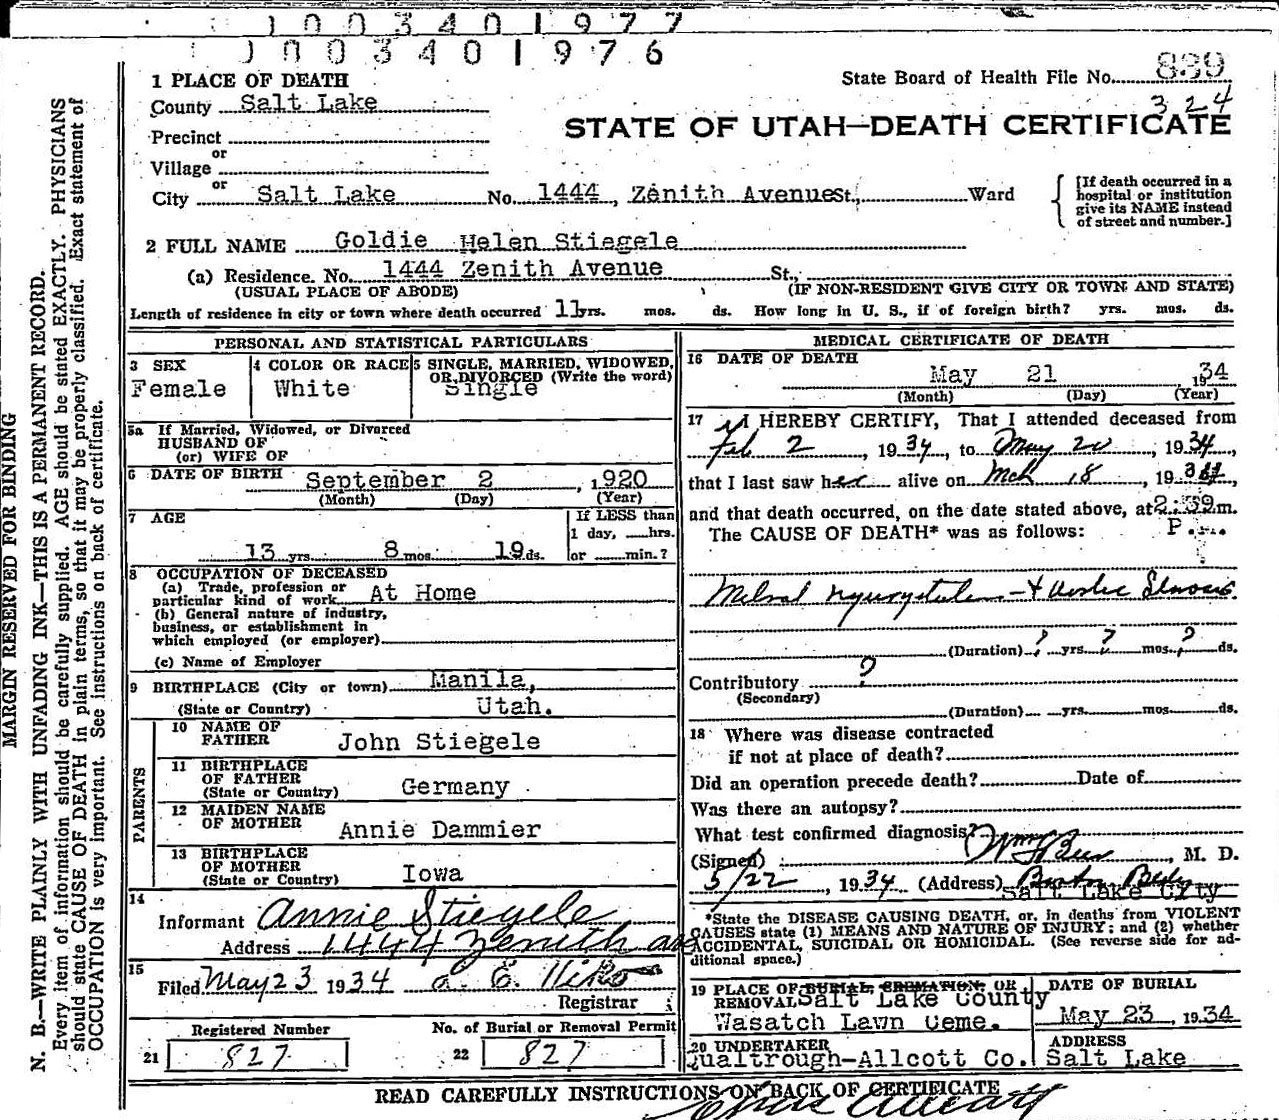 1003401977
1003401976
1 PLACE OF DEATH
State Board of Health File No. 839
324
County Salt Lake
STATE OF UTAH—DEATH CERTIFICATE
Precinct
or
Village
or
City Salt Lake No. 1444, Zenith Avenue St., Ward
[If death occurred in a hospital or institution give its NAME instead of street and number.]
2 FULL NAME Goldie Helen Stiegele
(a) Residence. No. 1444 Zenith Avenue St.,
(USUAL PLACE OF ABODE) (IF NON-RESIDENT GIVE CITY OR TOWN AND STATE)
Length of residence in city or town where death occurred 11 yrs. mos. ds. How long in U. S., if of foreign birth? yrs. mos. ds.
PERSONAL AND STATISTICAL PARTICULARS
3 SEX
Female
4 COLOR OR RACE
White
5 SINGLE, MARRIED, WIDOWED,
OR DIVORCED (Write the word)
Single
5a If Married, Widowed, or Divorced
HUSBAND OF
(or) WIFE OF
6 DATE OF BIRTH September 2, 1920
(Month) (Day) (Year)
7 AGE
13 yrs. 8 mos. 19 ds.
If LESS than
1 day, hrs.
or min.?
8 OCCUPATION OF DECEASED
(a) Trade, profession or
particular kind of work At Home
(b) General nature of industry,
business, or establishment in
which employed (or employer)
(c) Name of Employer
9 BIRTHPLACE (City or town) Manila,
(State or Country) Utah.
PARENTS
10 NAME OF
FATHER John Stiegele
11 BIRTHPLACE
OF FATHER
(State or Country) Germany
12 MAIDEN NAME
OF MOTHER Annie Dammier
13 BIRTHPLACE
OF MOTHER
(State or Country) Iowa
14
Informant Annie Stiegele
Address 1444 Zenith ave
15
Filed May 23 1934
Registrar
Registered Number
21 827
No. of Burial or Removal Permit
22 827
MEDICAL CERTIFICATE OF DEATH
16 DATE OF DEATH
May 21 1934
(Month) (Day) (Year)
17 I HEREBY CERTIFY, That I attended deceased from
Feb 2, 1934, to May 20, 1934,
that I last saw her alive on Mch 18, 1934,
and that death occurred, on the date stated above, at 2:39 m.
P.M.
The CAUSE OF DEATH* was as follows:
(Duration) ? yrs. ? mos. ? ds.
Contributory ?
(Secondary)
(Duration) yrs. mos. ds.
18 Where was disease contracted
if not at place of death?
Did an operation precede death? Date of
Was there an autopsy?
What test confirmed diagnosis?
(Signed) , M. D.
5/22, 1934 (Address)
Salt Lake City
*State the DISEASE CAUSING DEATH, or, in deaths from VIOLENT
CAUSES state (1) MEANS AND NATURE OF INJURY: and (2) whether
ACCIDENTAL, SUICIDAL OR HOMICIDAL. (See reverse side for ad-
ditional space.)
19 PLACE OF BURIAL, CREMATION, OR
REMOVAL Salt Lake County
Wasatch Lawn Ceme.
DATE OF BURIAL
May 23, 1934
20 UNDERTAKER
Qualtrough-Allcott Co.
ADDRESS
Salt Lake
READ CAREFULLY INSTRUCTIONS ON BACK OF CERTIFICATE
MARGIN RESERVED FOR BINDING
N. B.—WRITE PLAINLY WITH UNFADING INK—THIS IS A PERMANENT RECORD.
Every item of information should be carefully supplied. AGE should be stated EXACTLY. PHYSICIANS
should state CAUSE OF DEATH in plain terms, so that it may be properly classified. Exact statement of
OCCUPATION is very important. See instructions on back of certificate.